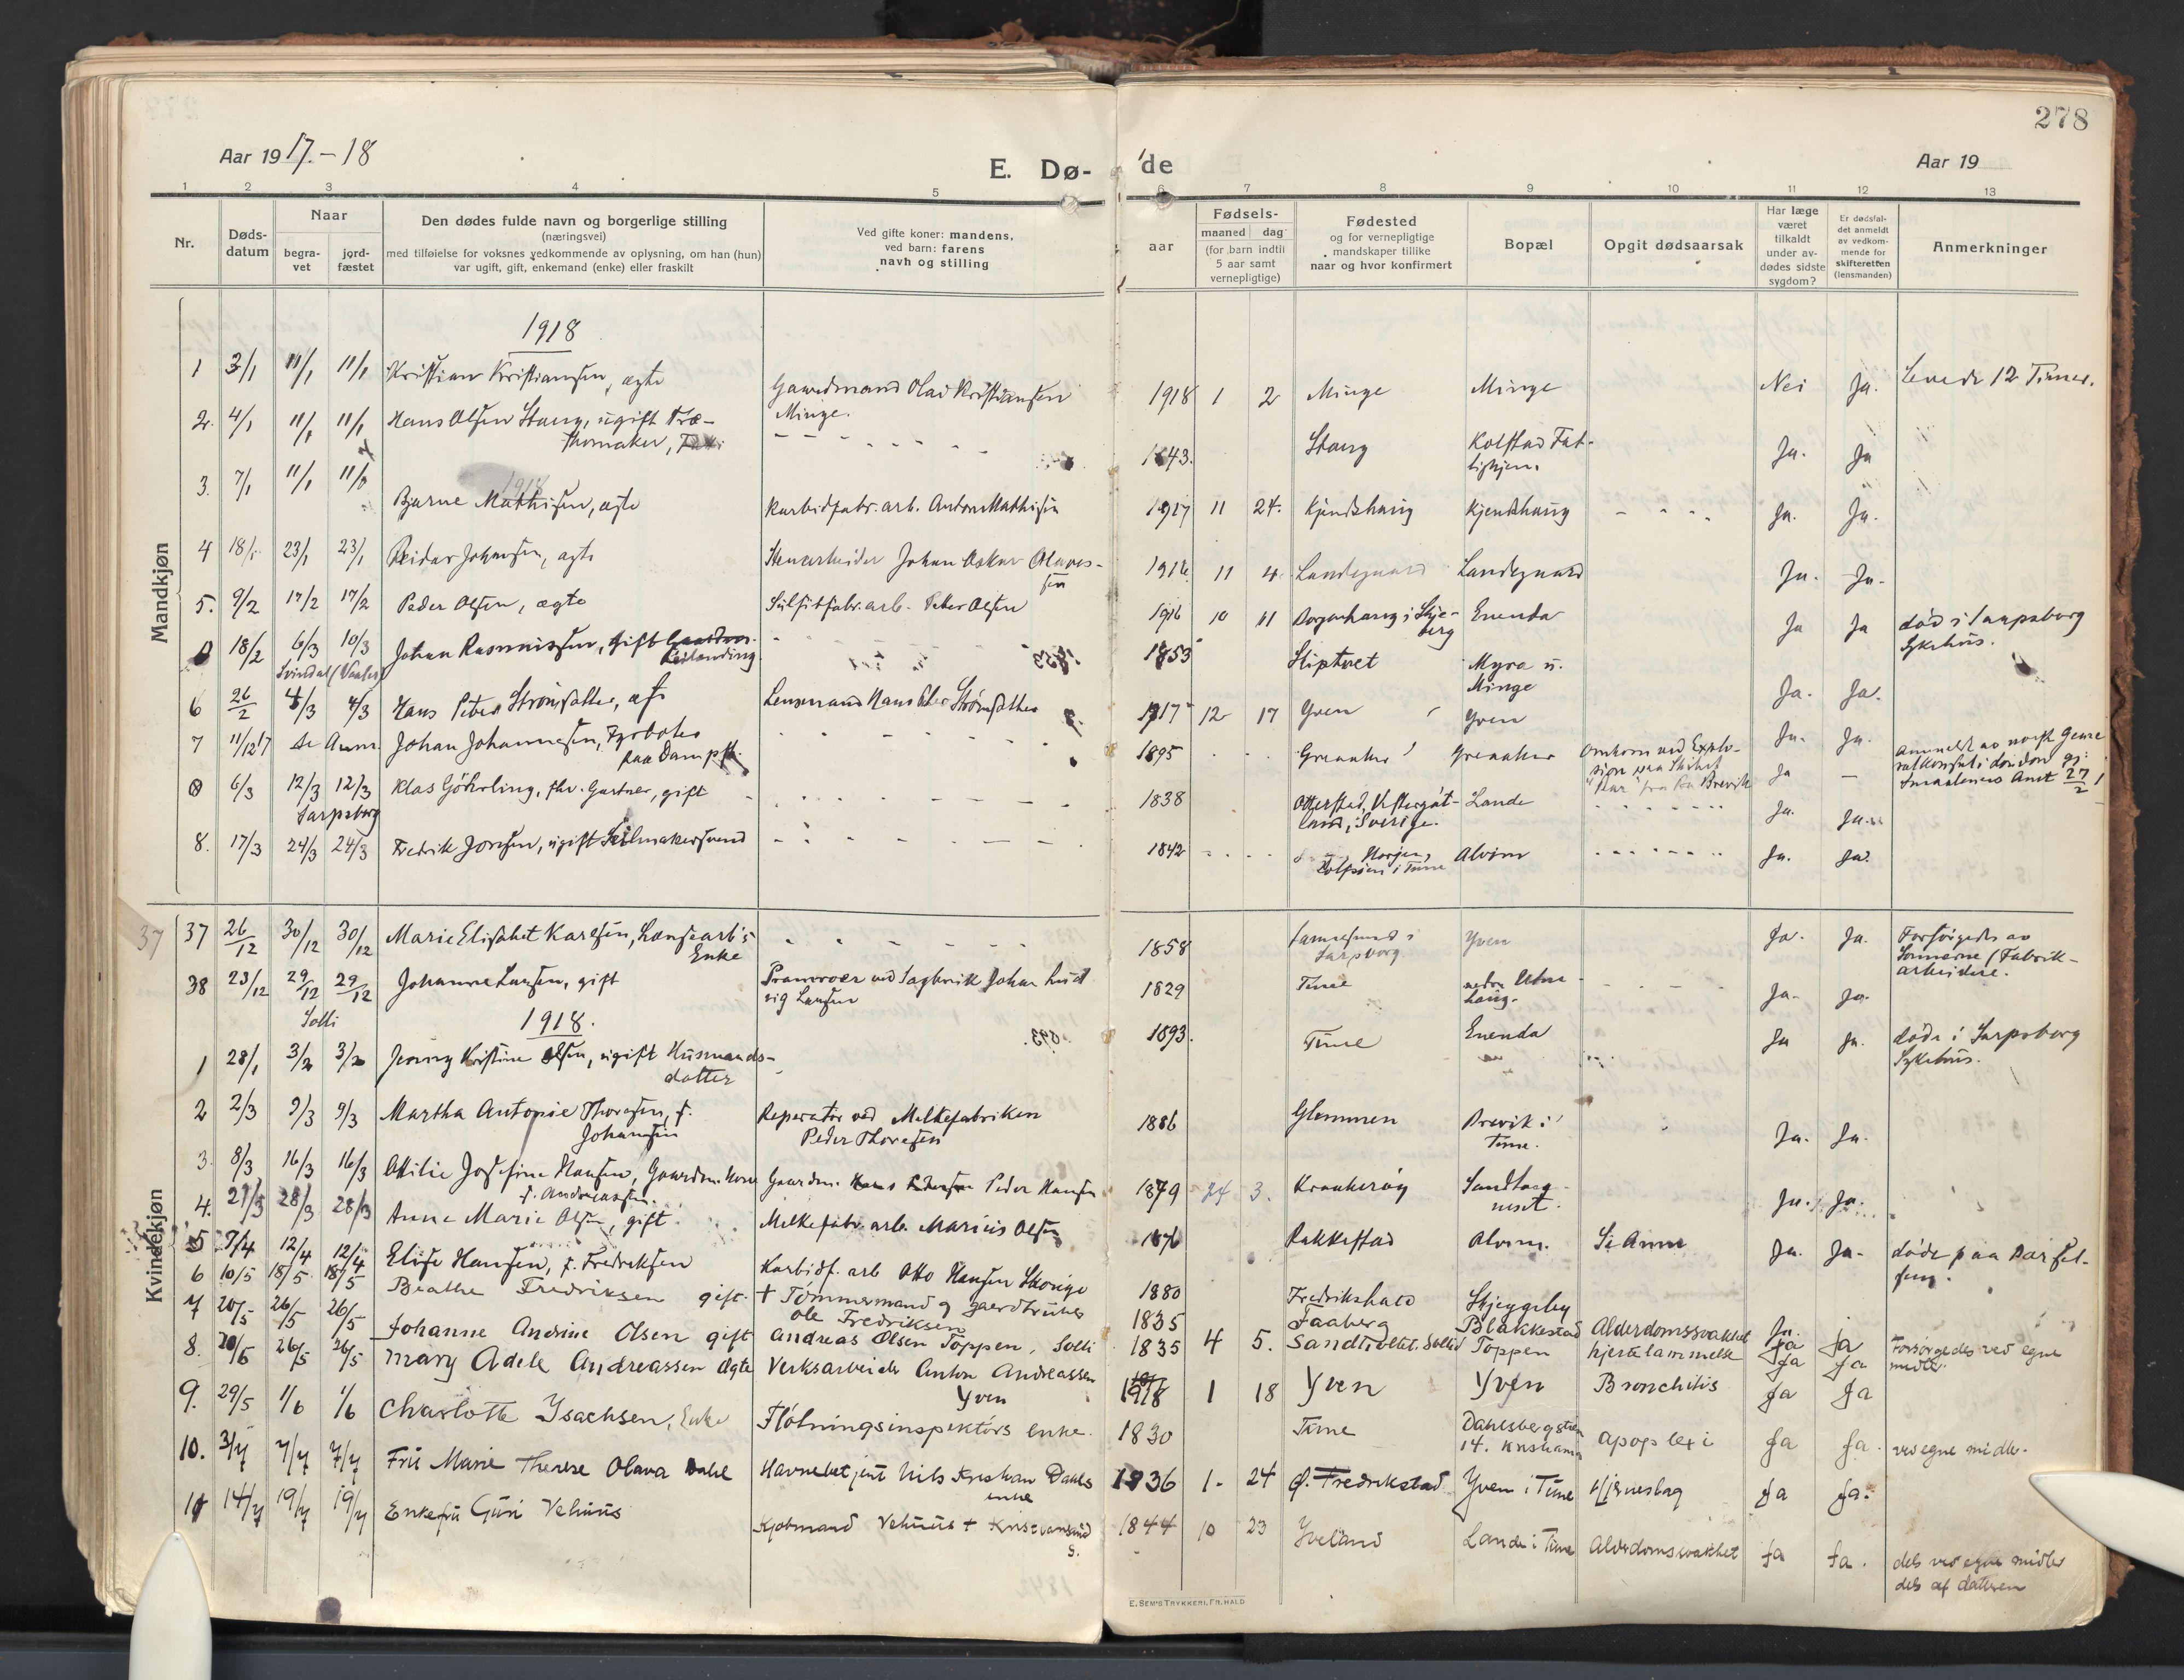 278
Aar 1917.-18
E. Dø-
de
Aar 19
1 2 3 4 5 6 7 8 9 10 11 12 13
Nr.
Døds-
datum
Naar
begra-
vet
jord-
fæstet
Den dødes fulde navn og borgerlige stilling
(næringsvei)
med tilføielse for voksnes vedkommende av oplysning, om han (hun)
var ugift, gift, enkemand (enke) eller fraskilt
Ved gifte koner: mandens,
ved barn: farens
navn og stilling
aar
Fødsels-
maaned dag
(for barn indtil
5 aar samt
vernepligtige)
Fødested
og for vernepligtige
mandskaper tillike
naar og hvor konfirmert
Bopæl
Opgit dødsaarsak
Har læge
været
tilkaldt
under av-
dødes sidste
sygdom?
Er dødsfal-
det anmeldt
av vedkom-
mende for
skifteretten
(lensmanden)
Anmerkninger
Mandkjøn
1918
1 3/1 11/1 11/1 Kristian Kristiansen, ægte Gaardmand Olai Kristiansen
Minge. 1918 1 2 Minge Minge Nei Ja. Levede 12 Timer.
2. 4/1 11/1 11/1 Hans Olsen Stang, ugift Træ-
skomaker, 1843. Stang Kolstad Fat-
tighjem. Ja. Ja
3. 7/1 11/1 11/1 Bjarne Mathisen, ægte Karbidfabr. arb. Anton Mathisen 1917 11 24. Kjendshaug Kjendshaug Ja. Ja.
4 18/1 23/1 23/1 Reidar Johansen, ægte Stenarbeider Johan Oskar Olaves-
sen 11 4 Landegaard Landegaard Ja. Ja.
5. 9/2 17/2 17/2 Peder Olsen, ægte Sulfitfabr. arb. Peder Olsen 1916 10 11 Borgenhaug i Skje-
berg Enenda Ja Ja død i Sarpsborg
Sykehus.
0 18/2 6/3 10/3 Johan Rasmussen, Gift 1853 Skiptvet Myra u.
Minge Ja. Ja.
Svindal (Vaaler)
6 26/2 4/3 4/3 Hans Peter Strømsæther, af Lensmand Hans Peter Strømsæther 1917 12 17 Yven Yven Ja. Ja.
7 11/12 17 Se Anm. Johan Johannesen, Fyrbøter
paa Dampsk. 1895 Greaaker Greaaker Omkom ved Explo-
sion paa Skibet Ja — Anmeldt av norsk Gene
ralkonsul i London gj.
Smaalenenes Amt 27/2
0 6/3 12/3 12/3 Klas Göthrling, fhv. Gartner, gift 1838 Otterstad, Vestergöt-
land, Sverige. Lande Ja. Ja.
Sarpsborg
8. 17/3 24/3 24/3 Fredrik Jonsen, ugift Seilmakersvend 1842 i Tune Alvim Ja. Ja.
Kvindekjøn
37 37 26/12 30/12 30/12 Marie Elisabet Karlsen, Lænsearb's
Enke 1858 Sannesund i
Sarpsborg Yven Ja. Ja. Forsørgedes av
Sønnerne (Fabrik-
arbeidere.
38 23/12 29/12 29/12 Johanne Larsen, gift Pramroer ved Sagbruk Johan Lud
vig Larsen 1829 Tune nedre
haug. Ja. Ja.
Solli
1918.
1 28/1 3/2 3/2 Jenny Kristine Olsen, ugift Husmands-
datter 1893. Tune Enenda Ja Ja. døde i Sarpsborg
Sykehus.
2 2/3 9/3 9/3 Martha Antonie Thoresen, f.
Johansen Reperatør ved Melkefabriken
Peder Thoresen 1886 Glemmen Brevik i
Tune. Ja. Ja.
3. 8/3 16/3 16/3 Otilie Josefine Hansen, Gaardm. kone
f. Andreassen. Gaardm. Peder Hansen 1879 24 3. Kraakerøy Sandtang-
neset. Ja. Ja.
4. 21/3 28/3 28/3 Anne Marie Olsen, gift Melkefabr. arb. Marius Olsen 1876 Rakkestad Alvim. Se Anm Ja. Ja. døde paa Barsel-
seng.
5 7/4 12/4 12/4 Elise Hansen, f. Fredriksen Karbidf. arb Otto Hansen Skovige 1880 Fredrikshald Skjeggeby Ja.
6 10/5 18/5 18/5 Beathe Fredriksen gift. + Tømmermand og gaardbruker
Ole Fredriksen 1835 Faaberg Blakkestad Alderdomssvakhet Ja Ja Forsørgedes ved egne
midler.
7 20/5 26/5 26/5 Johanne Andrine Olsen gift Andreas Olsen Toppen, Solli 1835 4 5. Sandtoltet, Solli Toppen hjertelammelse Ja Ja
8. 20/5 26/5 26/5 Mary Adele Andreassen ægte Verksarbeider Anton Andreassen
Yven 1918 1 18 Yven Yven Bronchitis Ja Ja
9. 29/5 1/6 1/6 Charlotte Ysachsen, Enke Fløtningsinspektørs enke. 1830 Tune Dahlsbergstien
14. Kristiania apoplexi Ja Ja. ved egne midler.
10. 3/7 7/7 7/7 Frü Marie Therese Olava Dahl Havnebetjent Nils Kristian Dahls
enke 1836 1. 24 G. Fredrikstad Yven i Tune Hjerneslag Ja Ja.
11 14/7 19/7 19/7 Enkefrü Guri Vehuus Kjøbmand Vehuus + Kristiansand
S. 1844 10 23 Yveland Lande i Tune Alderdomssvakhet Ja Ja. dels ved egne midler
dels af datteren
E. SEM'S TRYKKERI, FR.HALD